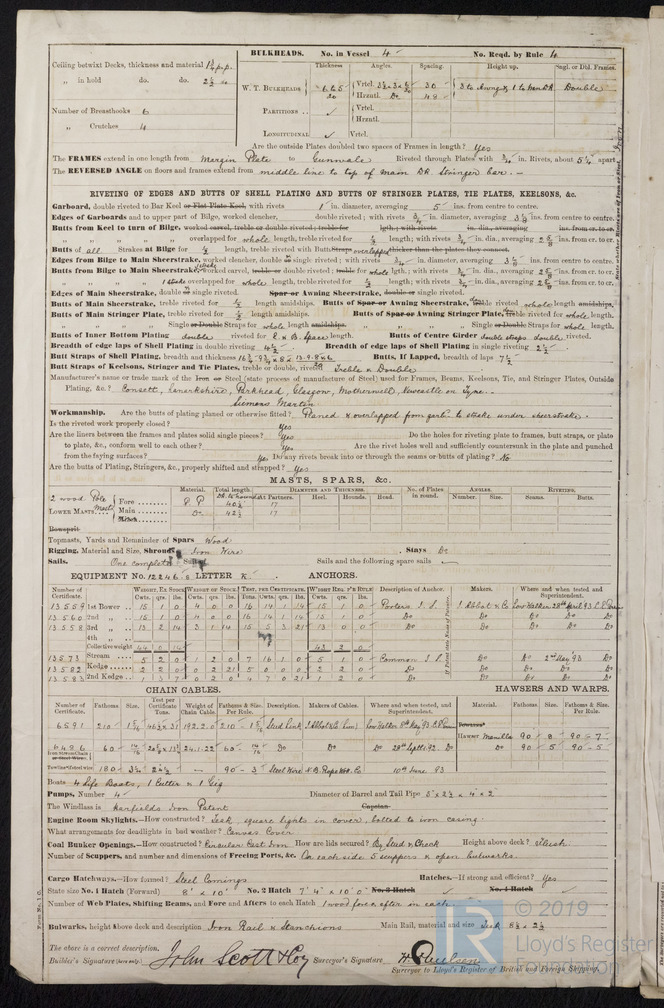 Ceiling betwixt Decks, thickness and material
„ in hold do. do. 2½
Number of Breasthooks 6
„ Crutches 4
BULKHEADS. No. in Vessel 4 No. Reqd. by Rule 4
Thickness Angles. Spacing. Height up. Sngl. or Dbl. Frames.
W. T. BULKHEADS Vrtcl. 30 Double
Hrzntl. Do 48
PARTITIONS Vrtcl.
Hrzntl.
LONGITUDINAL Vrtcl.
Are the outside Plates doubled two spaces of Frames in length? Yes
The FRAMES extend in one length from Margin Plate to Gunwale Riveted through Plates with ¾ in. Rivets, about 5¼ apart
The REVERSED ANGLE on floors and frames extend from middle line to top of main DK Stringer bar.
RIVETING OF EDGES AND BUTTS OF SHELL PLATING AND BUTTS OF STRINGER PLATES, TIE PLATES, KEELSONS, &c.
Garboard, double riveted to Bar Keel or Flat Plate Keel, with rivets 1 in. diameter, averaging 5 ins. from centre to centre.
Edges of Garboards and to upper part of Bilge, worked clencher, double riveted; with rivets ¾ in. diameter, averaging ins. from centre to centre.
Butts from Keel to turn of Bilge, worked carvel, treble or double riveted; treble for lgth.; with rivets in. dia., averaging ins. fr. cr. to cr.
„ „ „ „ overlapped for whole length, treble riveted for ½ length; with rivets ¾ in. dia., averaging ins. fr. cr. to cr.
Butts of all Strakes at Bilge for ½ length, treble riveted with Butts Straps overlapped thicker than the plates they connect.
Edges from Bilge to Main Sheerstrake, worked clencher, double or single riveted; with rivets in. diameter, averaging ins. from centre to centre.
Butts from Bilge to Main Sheerstrake, worked carvel, treble or double riveted; treble for whole lgth.; with rivets ¾ in. dia., averaging ins. fr. cr. to cr.
„ „ overlapped for whole length, treble riveted for ½ length; with rivets ¾ in. dia., averaging ins. fr. cr. to cr.
Edges of Main Sheerstrake, double or single riveted. Spar or Awning Sheerstrake, double or single riveted.
Butts of Main Sheerstrake, treble riveted for ½ length amidships. Butts of Spar or Awning Sheerstrake, treble riveted whole length amidships.
Butts of Main Stringer Plate, treble riveted for ½ length amidships. Butts of Spar or Awning Stringer Plate, treble riveted for whole length.
„ „ Single or Double Straps for whole length amidships. „ „ Single or Double Straps for whole length.
Butts of Inner Bottom Plating double riveted for E & B. Space length. Butts of Centre Girder double straps double riveted.
Breadth of edge laps of Shell Plating in double riveting 4½ Breadth of edge laps of Shell Plating in single riveting
Butt Straps of Shell Plating, breadth and thickness Butts, If Lapped, breadth of laps 7½
Butt Straps of Keelsons, Stringer and Tie Plates, treble or double, riveted Treble & Double
Manufacturer's name or trade mark of the Iron or Steel (state process of manufacture of Steel) used for Frames, Beams, Keelsons, Tie, and Stringer Plates, Outside
Plating, &c.? Consett, Lanarkshire, Parkhead, Glasgow, Motherwell, Newcastle on Tyne.
Siemens Martin
Workmanship. Are the butts of plating planed or otherwise fitted? Planed & overlapped from garb. to strake under sheerstrake.
Is the riveted work properly closed? Yes
Are the liners between the frames and plates solid single pieces? Yes Do the holes for riveting plate to frames, butt straps, or plate
to plate, &c., conform well to each other? Yes Are the rivet holes well and sufficiently countersunk in the plate and punched
from the faying surfaces? Yes Do any rivets break into or through the seams or butts of plating? No
Are the butts of Plating, Stringers, &c., properly shifted and strapped? Yes
MASTS, SPARS, &c.
Material. Total length. DIAMETER AND THICKNESS. No. of Plates in round. ANGLES. RIVETING.
At Partners. Heel. Hounds. Head. Number. Size. Seams. Butts.
2 wood Pole Masts
LOWER MASTS Fore P. P. 40½ 17
Main Do 42½ 17
Mizen
Bowsprit
Topmasts, Yards and Remainder of Spars Wood
Rigging. Material and Size, Shrouds Iron Wire Stays Do
Sails. One complete Suit Sails and the following spare sails
EQUIPMENT No. 12246 LETTER ANCHORS.
Number of Certificate. WEIGHT, EX STOCK WEIGHT OF STOCK TEST, PER CERTIFICATE. WEIGHT REQ. P'R RULE Description of Anchor. Makers. Where and when tested and Superintendent.
Cwts. qrs. lbs. Cwts. qrs. lbs. Tons. Cwts. qrs. lbs. Cwts. qrs. lbs.
13559 1st Bower 15 1 0 4 0 0 16 14 1 14 15 1 0 Porters
13560 2nd „ 15 1 0 4 0 0 16 14 1 14 15 1 0 Do Do Do
13558 3rd „ 13 2 14 3 1 14 15 5 3 21 13 0 0 Do Do Do
4th „
Collective weight 44 0 14 43 2 0
13573 Stream 5 2 0 1 2 0 7 16 1 0 5 1 0 Common Do Do 2nd May 93 Do
13582 Kedge 2 2 0 0 2 21 5 0 0 0 2 2 0 Do Do Do Do Do
13583 2nd Kedge 1 3 7 0 2 0 4 7 0 21 1 2 0 Do Do Do Do Do
CHAIN CABLES. HAWSERS AND WARPS.
Number of Certificate. Fathoms Size. Test per Certificate Tons. Weight of Chain Cable. Fathoms & Size. Per Rule. Description. Makers of Cables. Where and when tested, and Superintendent. Material. Fathoms Size. Fathoms & Size Per Rule.
6591 210 192.2.0 210 Stud Link
HAWSER Manilla 90 8 90 – 7
6486 60 24.1.22 60 Do Do Do Do 90 5 90 – 5
Towline 180 90 – 3 Steel Wire 10th June 93
Boats 4 Life Boats, 1 Cutter & 1 Gig
Pumps, Number 4 Diameter of Barrel and Tail Pipe
The Windlass is Harfields Iron Patent Capstan
Engine Room Skylights.—How constructed? Teak, square lights in cover, bolted to iron casing
What arrangements for deadlights in bad weather? Canvas Cover
Coal Bunker Openings.—How constructed? Circular Cast Iron How are lids secured? By Stud & Check Height above deck? Flush
Number of Scuppers, and number and dimensions of Freeing Ports, &c. On each side 5 scuppers & open bulwarks.
Cargo Hatchways.—How formed? Steel Comings Hatches.—If strong and efficient? Yes
State size No. 1 Hatch (Forward) 8' x 10' No. 2 Hatch 7' 4" x 10' 0" No. 3 Hatch No. 4 Hatch
Number of Web Plates, Shifting Beams, and Fore and Afters to each Hatch 1 wood fore & after in each.
Bulwarks, height above deck and description Iron Rail & Stanchions Main Rail, material and size Teak
The above is a correct description.
Builder's Signature (here only) John Scott & Coy Surveyor's Signature H. Paulsen
Surveyor to Lloyd's Register of British and Foreign Shipping.
Form No. 1 C.
© 2019
Lloyd's Register
Foundation